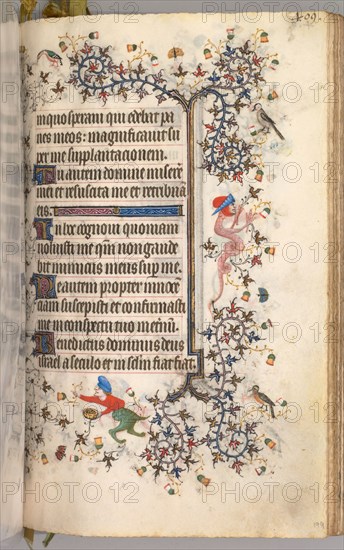 409.
in quo speraui qui edebat pa
nes meos: magnificauit su
per me supplantacionem.
Tu autem domine misere
mei et resuscita me et retribuā
eis.
In hoc cognoui quoniam
voluisti me qm̄ non gaude
bit inimicus meus sup me.
Me autem propter innocē
ciam suscepisti et confirmasti
me in conspectu tuo in eternū.
Benedictus dominus deus
israel a seculo et in seclm fiat fiat.